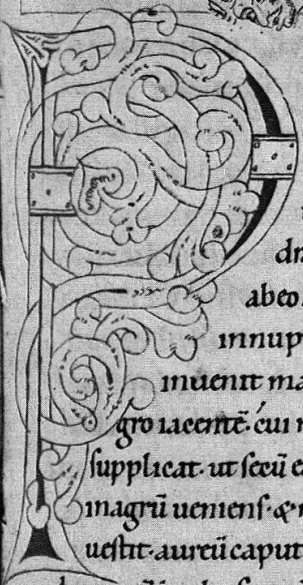 P
dr
abeo
innup
inuenit ma
gro iacente᷉. cui
supplicat. ut secū
in agrū ueniens. &
uestit. aureū caput